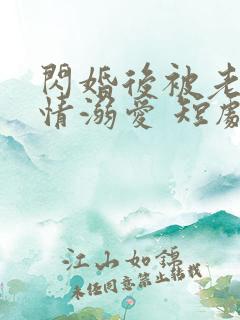 閃婚後被老
情溺愛 短劇
江山如錦
未经同意禁止转载